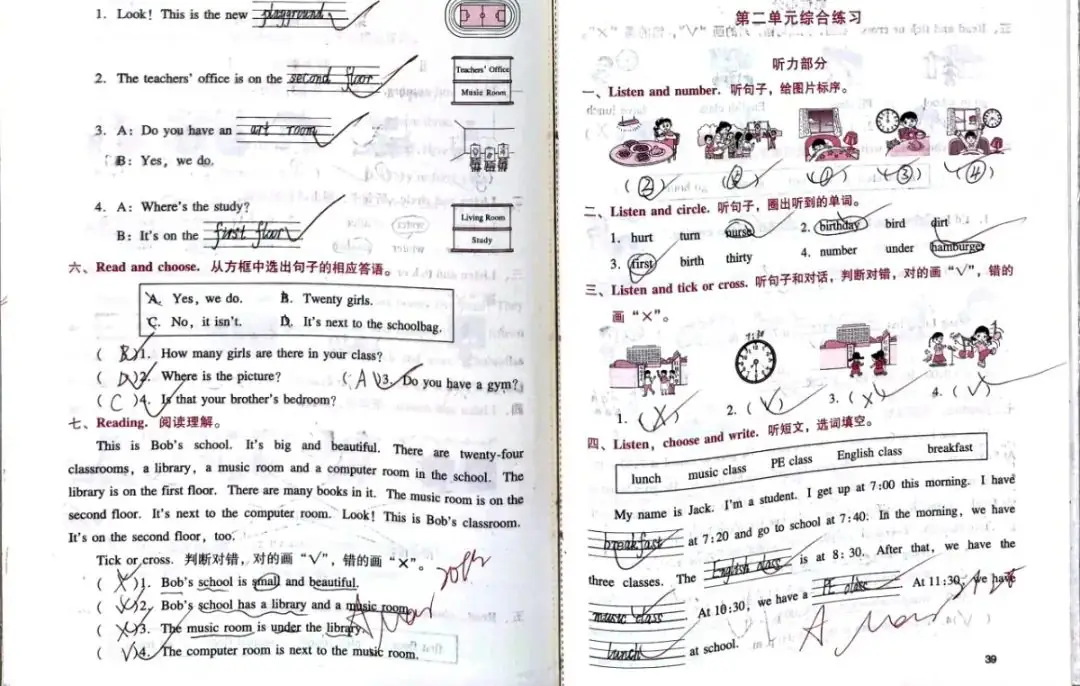 1. Look! This is the new playground
2. The teachers' office is on the second floor
Teachers' Office
Music Room
3. A: Do you have an art room
B: Yes, we do.
4. A: Where's the study?
B: It's on the first floor
Living Room
Study
六、Read and choose. 从方框中选出句子的相应答语。
A. Yes, we do. B. Twenty girls.
C. No, it isn't. D. It's next to the schoolbag.
( B )1. How many girls are there in your class?
( D )2. Where is the picture? ( A )3. Do you have a gym?
( C )4. Is that your brother's bedroom?
七、Reading. 阅读理解。
This is Bob's school. It's big and beautiful. There are twenty-four
classrooms, a library, a music room and a computer room in the school. The
library is on the first floor. There are many books in it. The music room is on the
second floor. It's next to the computer room. Look! This is Bob's classroom.
It's on the second floor, too.
Tick or cross. 判断对错，对的画“√”，错的画“×”。
( × )1. Bob's school is small and beautiful.
( × )2. Bob's school has a library and a music room.
( × )3. The music room is under the library.
( √ )4. The computer room is next to the music room.
第二单元综合练习
听力部分
一、Listen and number. 听句子，给图片标序。
( 2 ) ( ) ( 1 ) ( 3 ) ( 4 )
二、Listen and circle. 听句子，圈出听到的单词。
1. hurt turn nurse 2. birthday bird dirt
3. first birth thirty 4. number under hamburger
三、Listen and tick or cross. 听句子和对话，判断对错，对的画“√”，错的
画“×”。
7:30
1. ( × ) 2. ( √ ) 3. ( × ) 4. ( √ )
四、Listen, choose and write. 听短文，选词填空。
lunch music class PE class English class breakfast
My name is Jack. I'm a student. I get up at 7:00 this morning. I have
breakfast at 7:20 and go to school at 7:40. In the morning, we have
three classes. The English class is at 8:30. After that, we have the
music class At 10:30, we have a PE class At 11:30, we have
lunch at school.
39